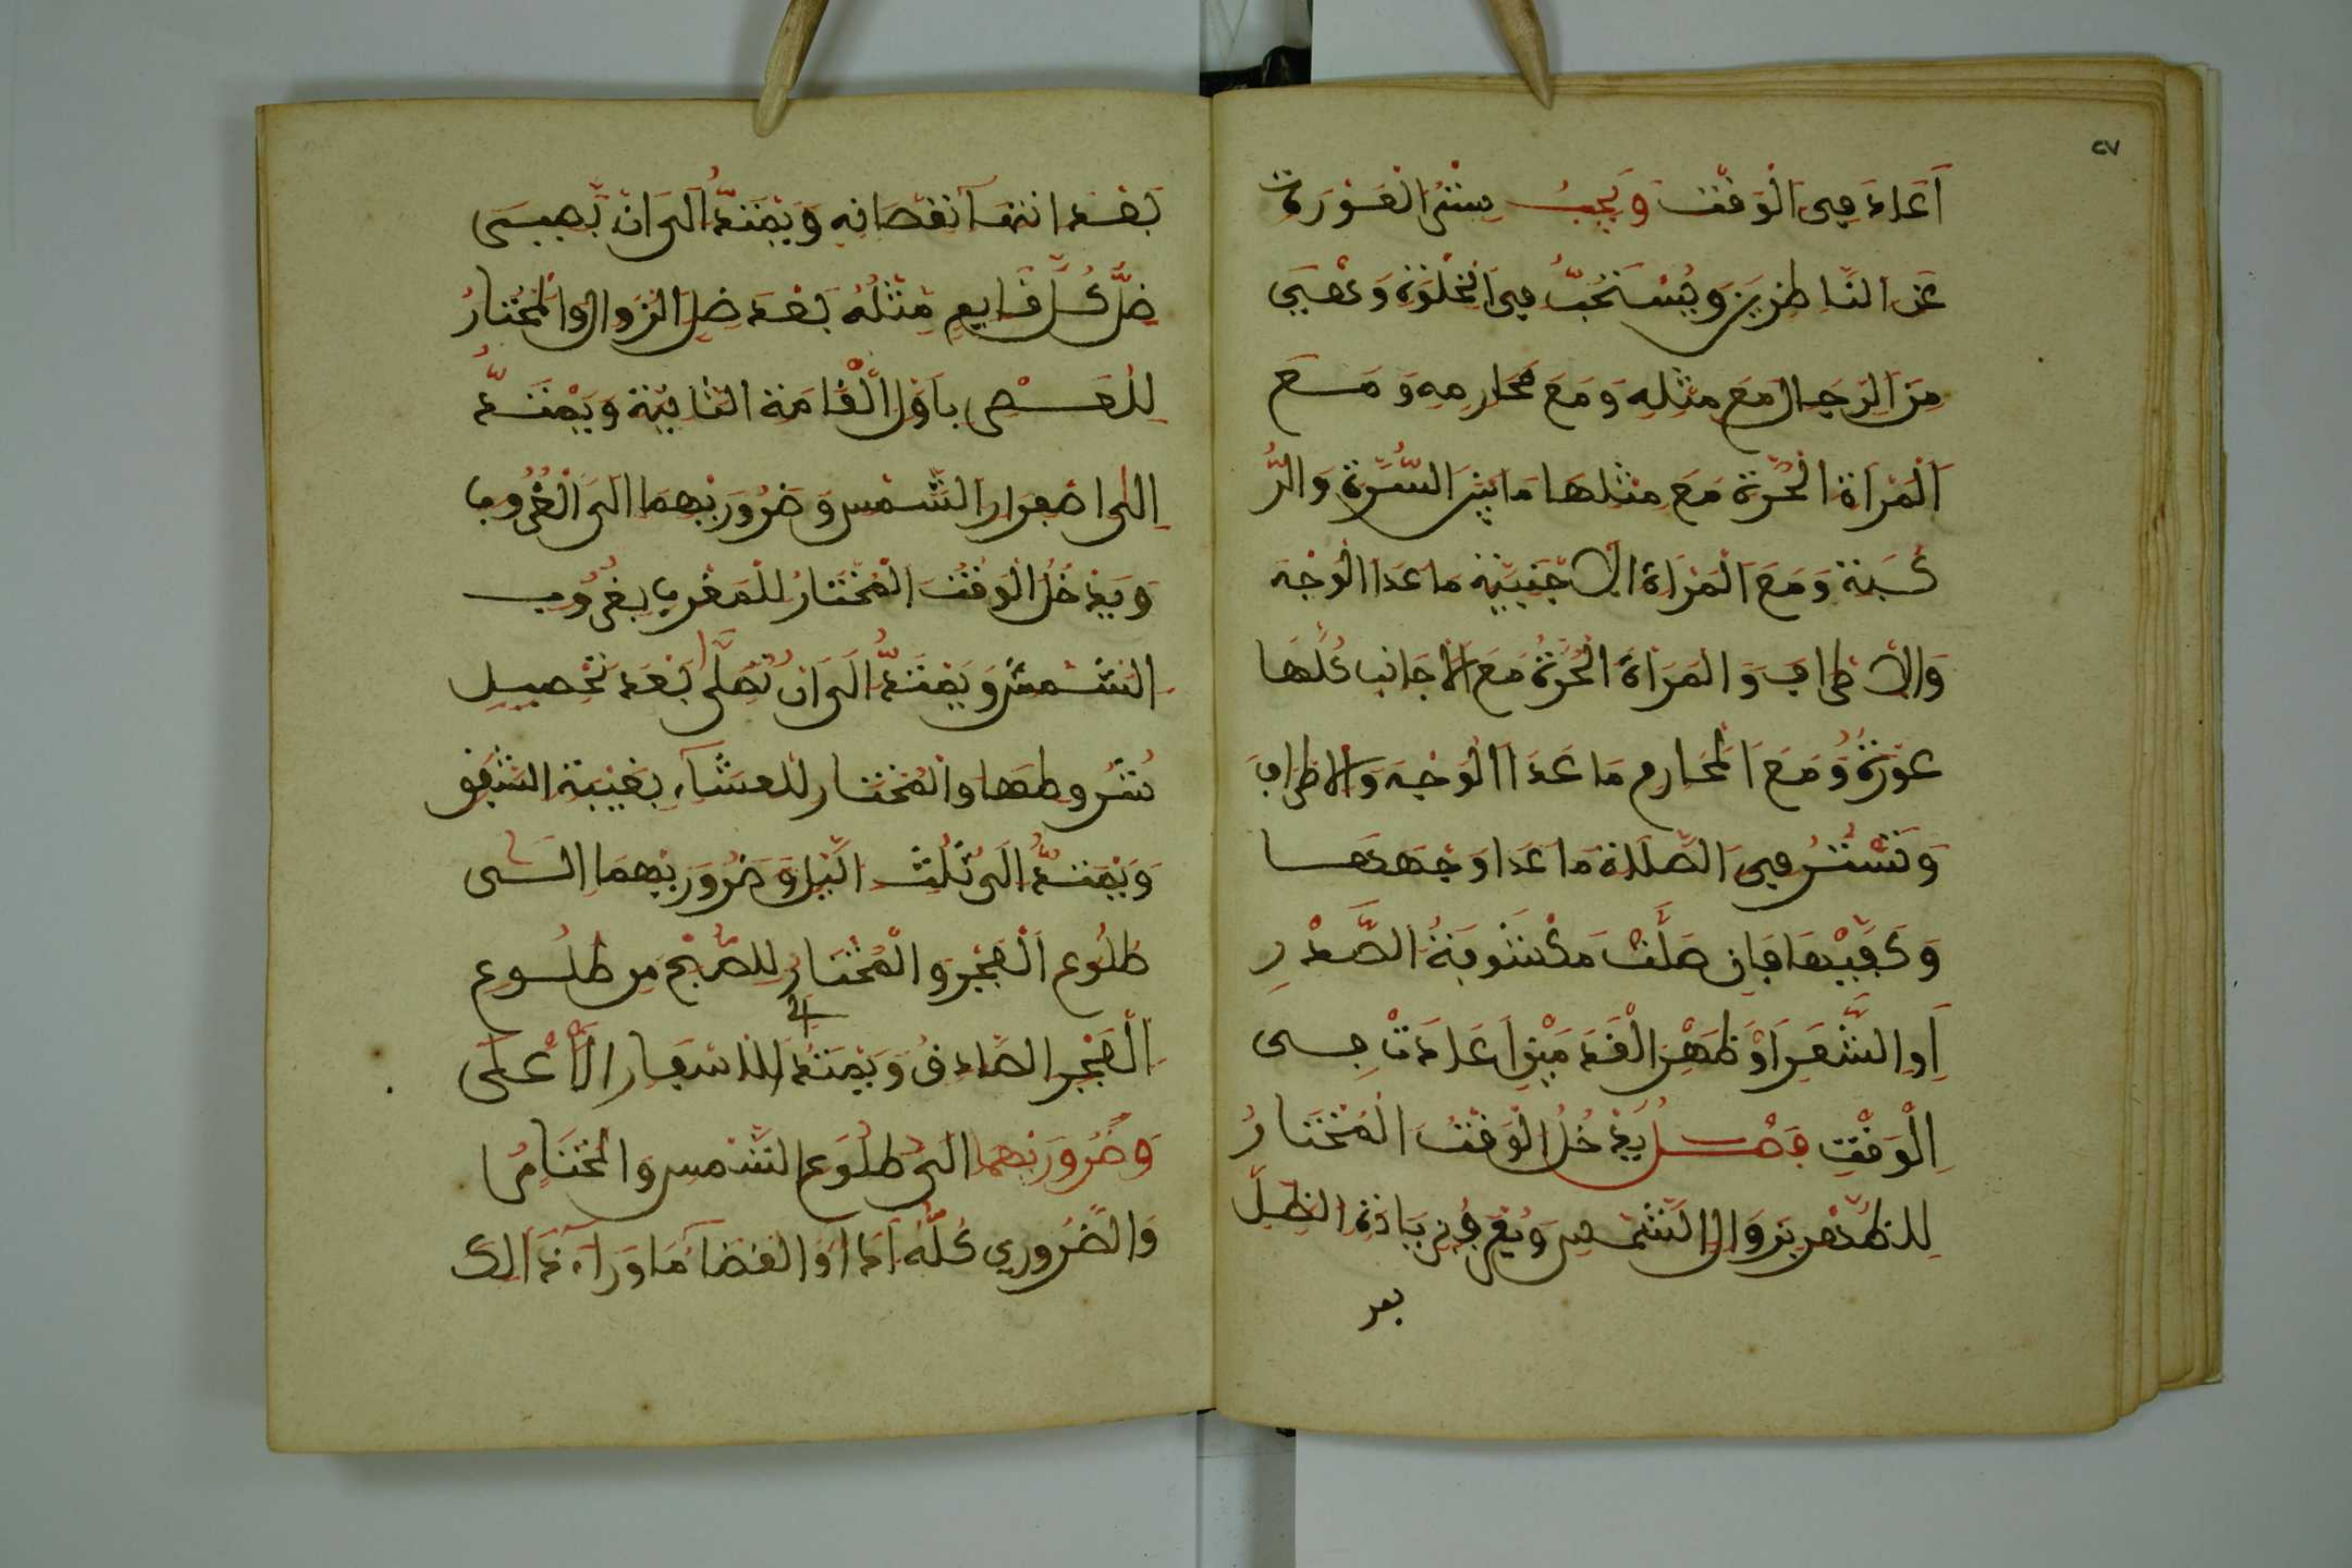 ٢٧
أَعَادَ فِي الْوَقْتِ وَيَجِبُ سِتْرُ الْعَوْرَةِ
عَنِ النَّاظِرِينَ وَيُسْتَحَبُّ فِي الْخَلْوَةِ وَهْيَ
مِنَ الرِّجَالِ مَعَ مِثْلِهِ وَمَعَ مَحَارِمِهِ وَمَعَ
الْمَرْأَةِ الْحُرَّةِ مَعَ مِثْلِهَا مَا بَيْنَ السُّرَّةِ وَالرُّ
كْبَةِ وَمَعَ الْمَرْأَةِ الْأَجْنَبِيَّةِ مَا عَدَا الْوَجْهَ
وَالْأَطْرَافَ وَالْمَرْأَةُ الْحُرَّةُ مَعَ الْأَجَانِبِ كُلُّهَا
عَوْرَةٌ وَمَعَ الْمَحَارِمِ مَا عَدَا الْوَجْهَ وَالْأَطْرَافَ
وَتَسْتُرُ فِي الصَّلَاةِ مَا عَدَا وَجْهَهَا
وَكَفَّيْهَا فَإِنْ صَلَّتْ مَكْشُوفَةَ الصَّدْرِ
أَوِ الشَّعَرِ أَوْ ظَهْرِ الْقَدَمَيْنِ أَعَادَتْ فِي
الْوَقْتِ فَصْلٌ يَدْخُلُ الْوَقْتُ الْمُخْتَارُ
لِلظُّهْرِ بِزَوَالِ الشَّمْسِ وَيُعْرَفُ بِزِيَادَةِ الظِّلِّ
بعد
بَعْدَ انْتِهَآ نُقْصَانِهِ وَيَمْتَدُّ إِلَى أَنْ يَّصِيرَ
ظِلُّ كُلِّ قَايِمٍ مِثْلَهُ بَعْدَ ظِلِّ الزَّوَالِ وَالْمُخْتَارُ
لِلْعَصْرِ بِأَوَّلِ الْقَامَةِ الثَّانِيَةِ وَيَمْتَدُّ
إِلَى اصْفِرَارِ الشَّمْسِ وَضَرُورِيُّهُمَا إِلَى الْغُرُوبِ
وَيَدْخُلُ الْوَقْتُ الْمُخْتَارُ لِلْمَغْرِبِ بِغُرُوبِ
الشَّمْسِ وَيَمْتَدُّ إِلَى أَنْ تُصَلَّى بَعْدَ تَحْصِيلِ
شُرُوطِهَا وَالْمُخْتَارُ لِلْعِشَآءِ بِغَيْبَةِ الشَّفَقِ
وَيَمْتَدُّ إِلَى ثُلُثِ الَّيْلِ وَضَرُورِيُّهُمَا إِلَى
طُلُوعِ الْفَجْرِ وَالْمُخْتَارُ لِلصُّبْحِ مِنْ طُلُوعِ
الْفَجْرِ الصَّادِقِ وَيَمْتَدُّ لِلْإِسْفَارِ الْأَعْلَى
وَضَرُورِيُّهَمَا إِلَى طُلُوعِ الشَّمْسِ وَالْمُخْتَارُ
وَالضَّرُورِي كُلُّهُ أَدَاءٌ وَالْقَضَآءُ مَا وَرَآءَ ذَالِكَ